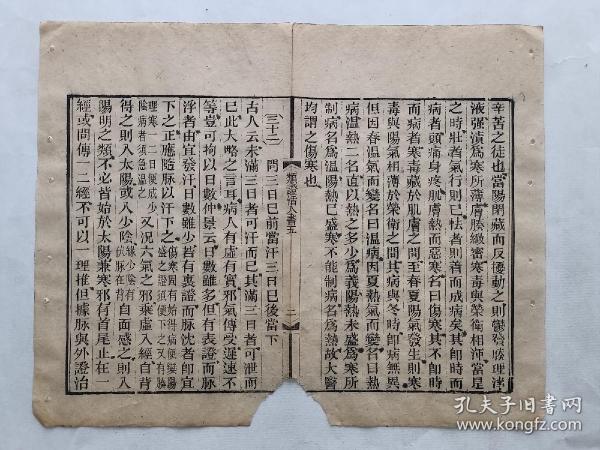 辛苦之徒也當陽閉藏而反擾動之則鬱發腠理津
液强漬爲寒所薄膚腠緻密寒毒與榮衛相渾當是
之時壯者氣行則已怯者則着而成病矣其即時而
病者頭痛身疼肌膚熱而惡寒名曰傷寒其不即時
而病者寒毒藏於肌膚之間至春夏陽氣發生則寒
毒與陽氣相薄於榮衛之間其病與冬時即病無異
但因春温氣而變名曰温病因夏熱氣而變名曰熱
病温熱二名直以熱之多少爲義陽熱未盛爲寒所
制病名爲温陽熱已盛寒不能制病名爲熱故大醫
均謂之傷寒也
類證活人書五
二
(三十三)問三日巳前當汗三日巳後當下
古人云未滿三日者可汗而巳其滿三日者可泄而
巳此大略之言耳病人有虚有實邪氣傳受遲速不
等豈可拘以日數仲景云日數雖多但有表證而脉
浮者由宜發汗日數雖少若有裏證而脉沈者即宜
下之正應隨脉以汗下之傷寒固有始得病便變陽盛之證須便下之又有腠理寒一二日便成少陰病者須急温之
又况六氣之邪乘虚入經自背
得之則入太陽或入少陰緣少陰有伏脉在背自面感之則入
陽明之類不必皆始於太陽兼寒邪有首尾止在一
經或間傳一二經不可以一理推但據脉與外證治
孔夫子旧书网
www.kongfz.com